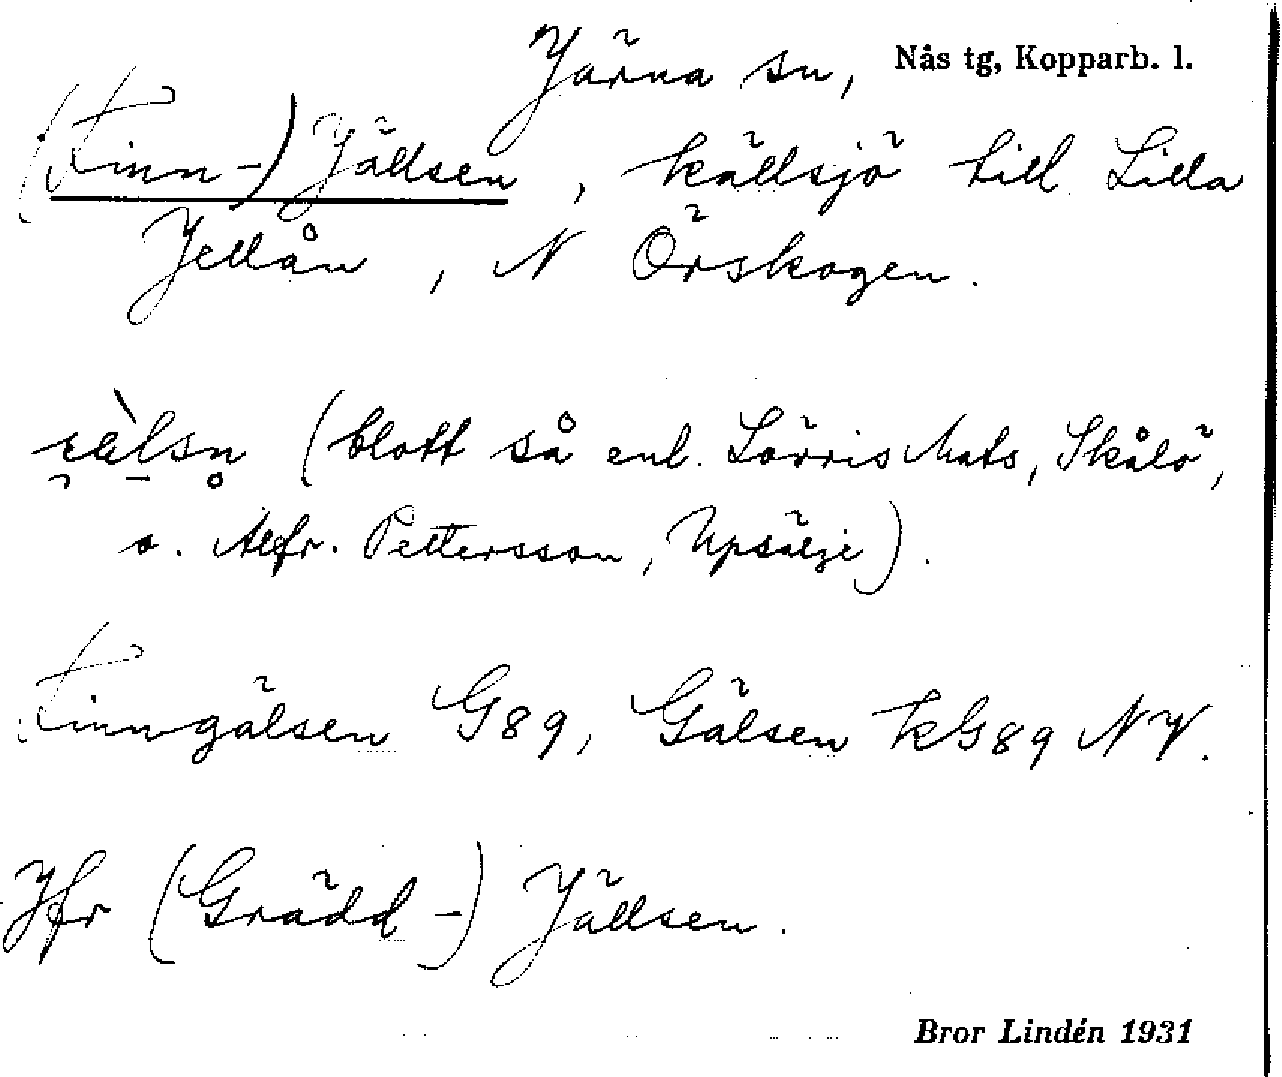 Järna sn, Nås tg, Kopparb. l.
(Finn-) Jällsen, källsjö till Lilla
Jellån, N Örskogen.
(blott så enl. Lörris Mats, Skålö,
o. Alfr. Pettersson, Upsälje).
Finngälsen G89, Gälsen kG89 NV.
Jfr (Grädd-) Jällsen.
Bror Lindén 1931